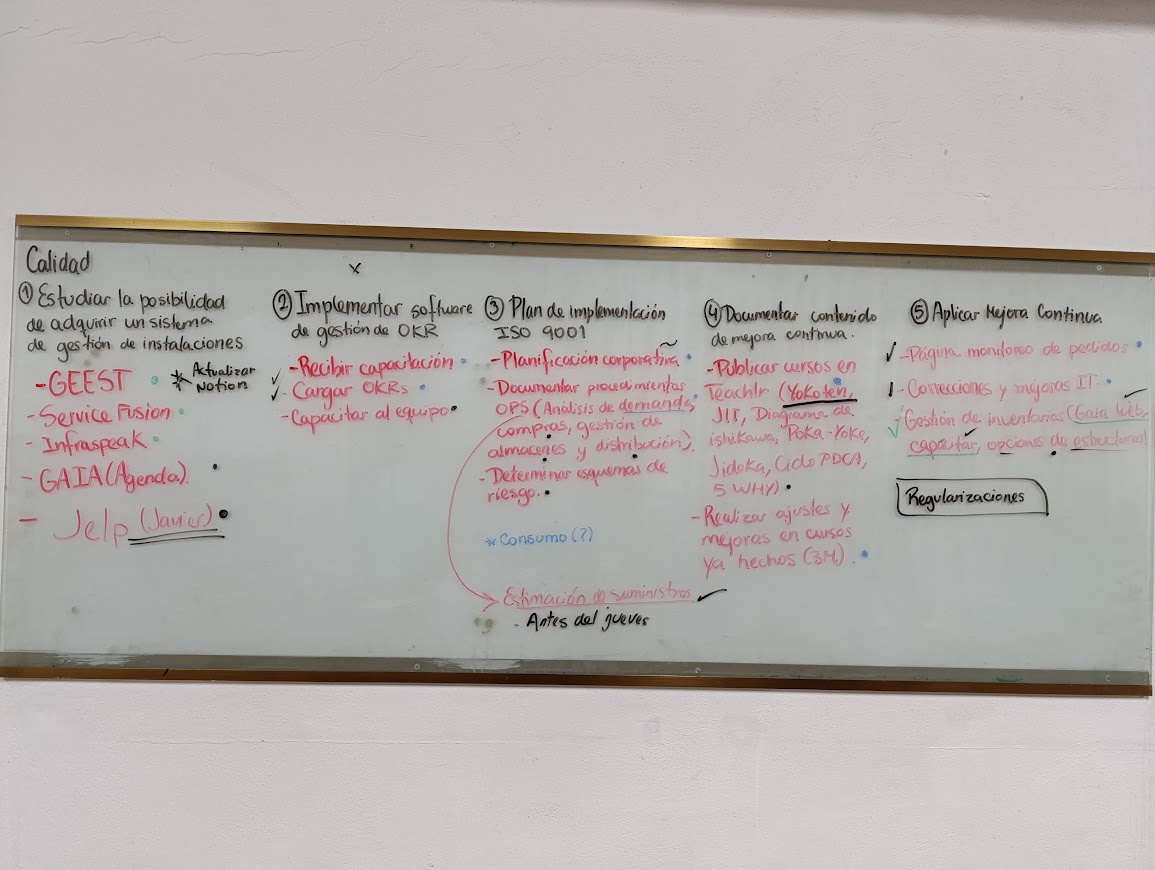 Calidad
① Estudiar la posibilidad
de adquirir un sistema
de gestión de instalaciones
-GEEST
* Actualizar
Notion
- Service Fusion
- Infraspeak
- GAIA (Agenda).
- Jelp (Javier)
x
② Implementar software
de gestión de OKR
✓ -Recibir capacitación
✓ - Cargar OKRs
-Capacitar al equipo
③ Plan de implementación
ISO 9001
-Planificación corporativa
~
-Documentar procedimientos
OPS (Análisis de demanda,
compras, gestión de
almacenes y distribución).
- Determinar esquemas de
riesgo.
*Consumo (?)
Estimación de suministros ✓
- Antes del jueves
④ Documentar contenido
de mejora continua.
-Publicar cursos en
Teachlr (Yokoten,
JIT, Diagrama de
ishikawa, Poka-Yoke,
Jidoka, Ciclo PDCA,
5 WHY)
-Realizar ajustes y
mejoras en cursos
ya hechos (3M).
⑤ Aplicar Mejora Continua.
✓ -Página monitoreo de pedidos
- Correcciones y mejoras IT.
✓ -Gestión de inventarios (Gaia Web, ✓
capacitar, opciones de estructuras)
Regularizaciones